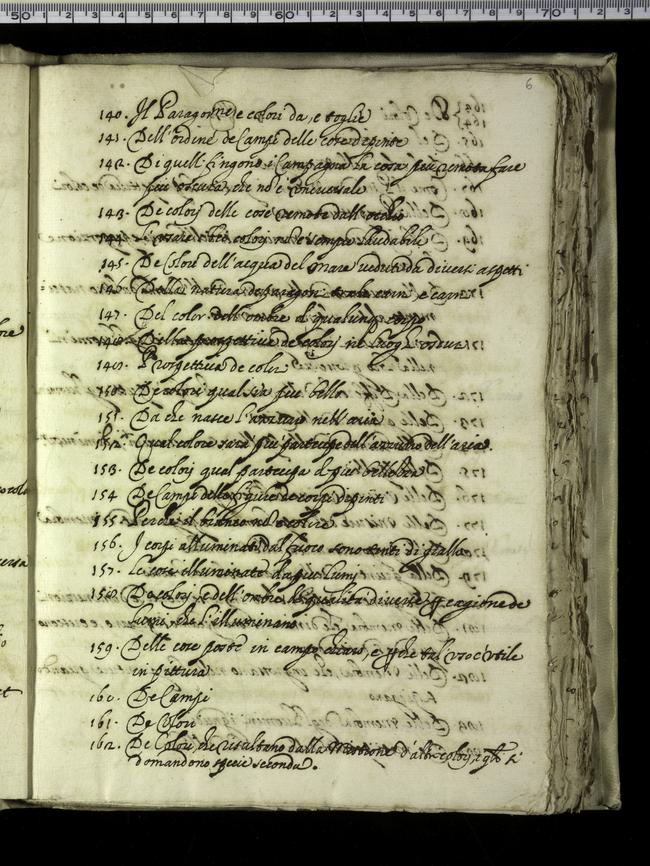 6
140. Il Paragone de colori da, e toglie
141. Dell'ordine de Campi delle cose depinte
142. Di quell fingono i Campagna la cosa più remota fare
più obscura, che no è universale
143. De colorj delle cose remote dall'occhio
144. l'usare colorj no è sempre laudabile
145. De Colori dell'acqua del mare veduta da diversi aspetti
146. Della natura de paragoni
147. Del color dell'ombre d qualunq corpo
148. Della prospettiva de colorj ne luoghi oscuri
149. Prospettiva de colori
150. De colori qual sia più bello
151. Da che nasce l'azzurro nell'aria
152. Qual colore sarà più partecipe dell'azzurro dell'aria.
153. De colorj qual partecipa d più bellezza
154 De Campi delle figure de corpi depinti
155. Perche il bianco no è colore
156. I corpi alluminati dal fuoco sono tinti di giallo
157. le cose illuminate da più lumj
158. De colorj, e dell'ombre d qualità diverse cagione de
lumi, che l'illuminano
159. Delle cose poste in campo chiaro, e che tal uso è utile
in pittura
160. De Campi
161. De Colori
162. De Colorj, che risultano dalla Mistione d'altri colorj, si
domandono specie seconda.